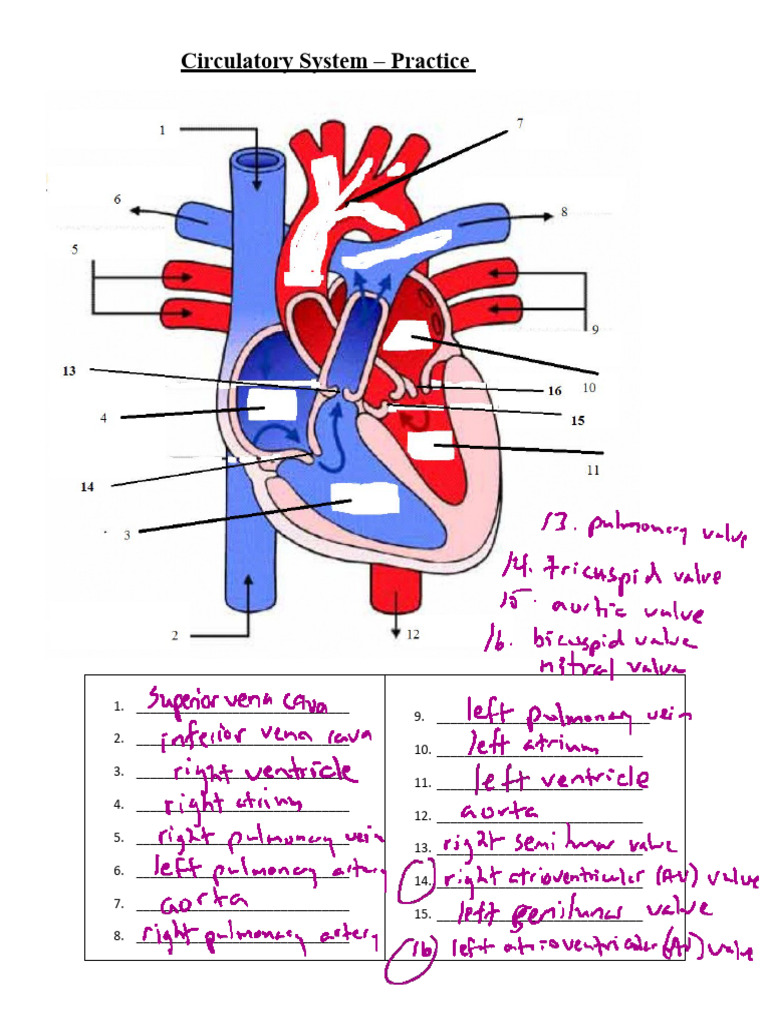 Circulatory System – Practice
1
7
6
8
5
9
13
16
10
4
15
14
11
3
2
12
13. pulmonary valve
14. tricuspid valve
15. aortic valve
16. bicuspid valve
nitral valva
1. Superior vena cava
2. inferior vena cava
3. right ventricle
4. right atrium
5. right pulmonary vein
6. left pulmonary artery
7. aorta
8. right pulmonary artery
9. left pulmonary vein
10. left atrium
11. left ventricle
12. aorta
13. right semilunar valve
14. right atrioventricular (AV) valve
15. left semilunar valve
16 left atrioventricular (AV) valve